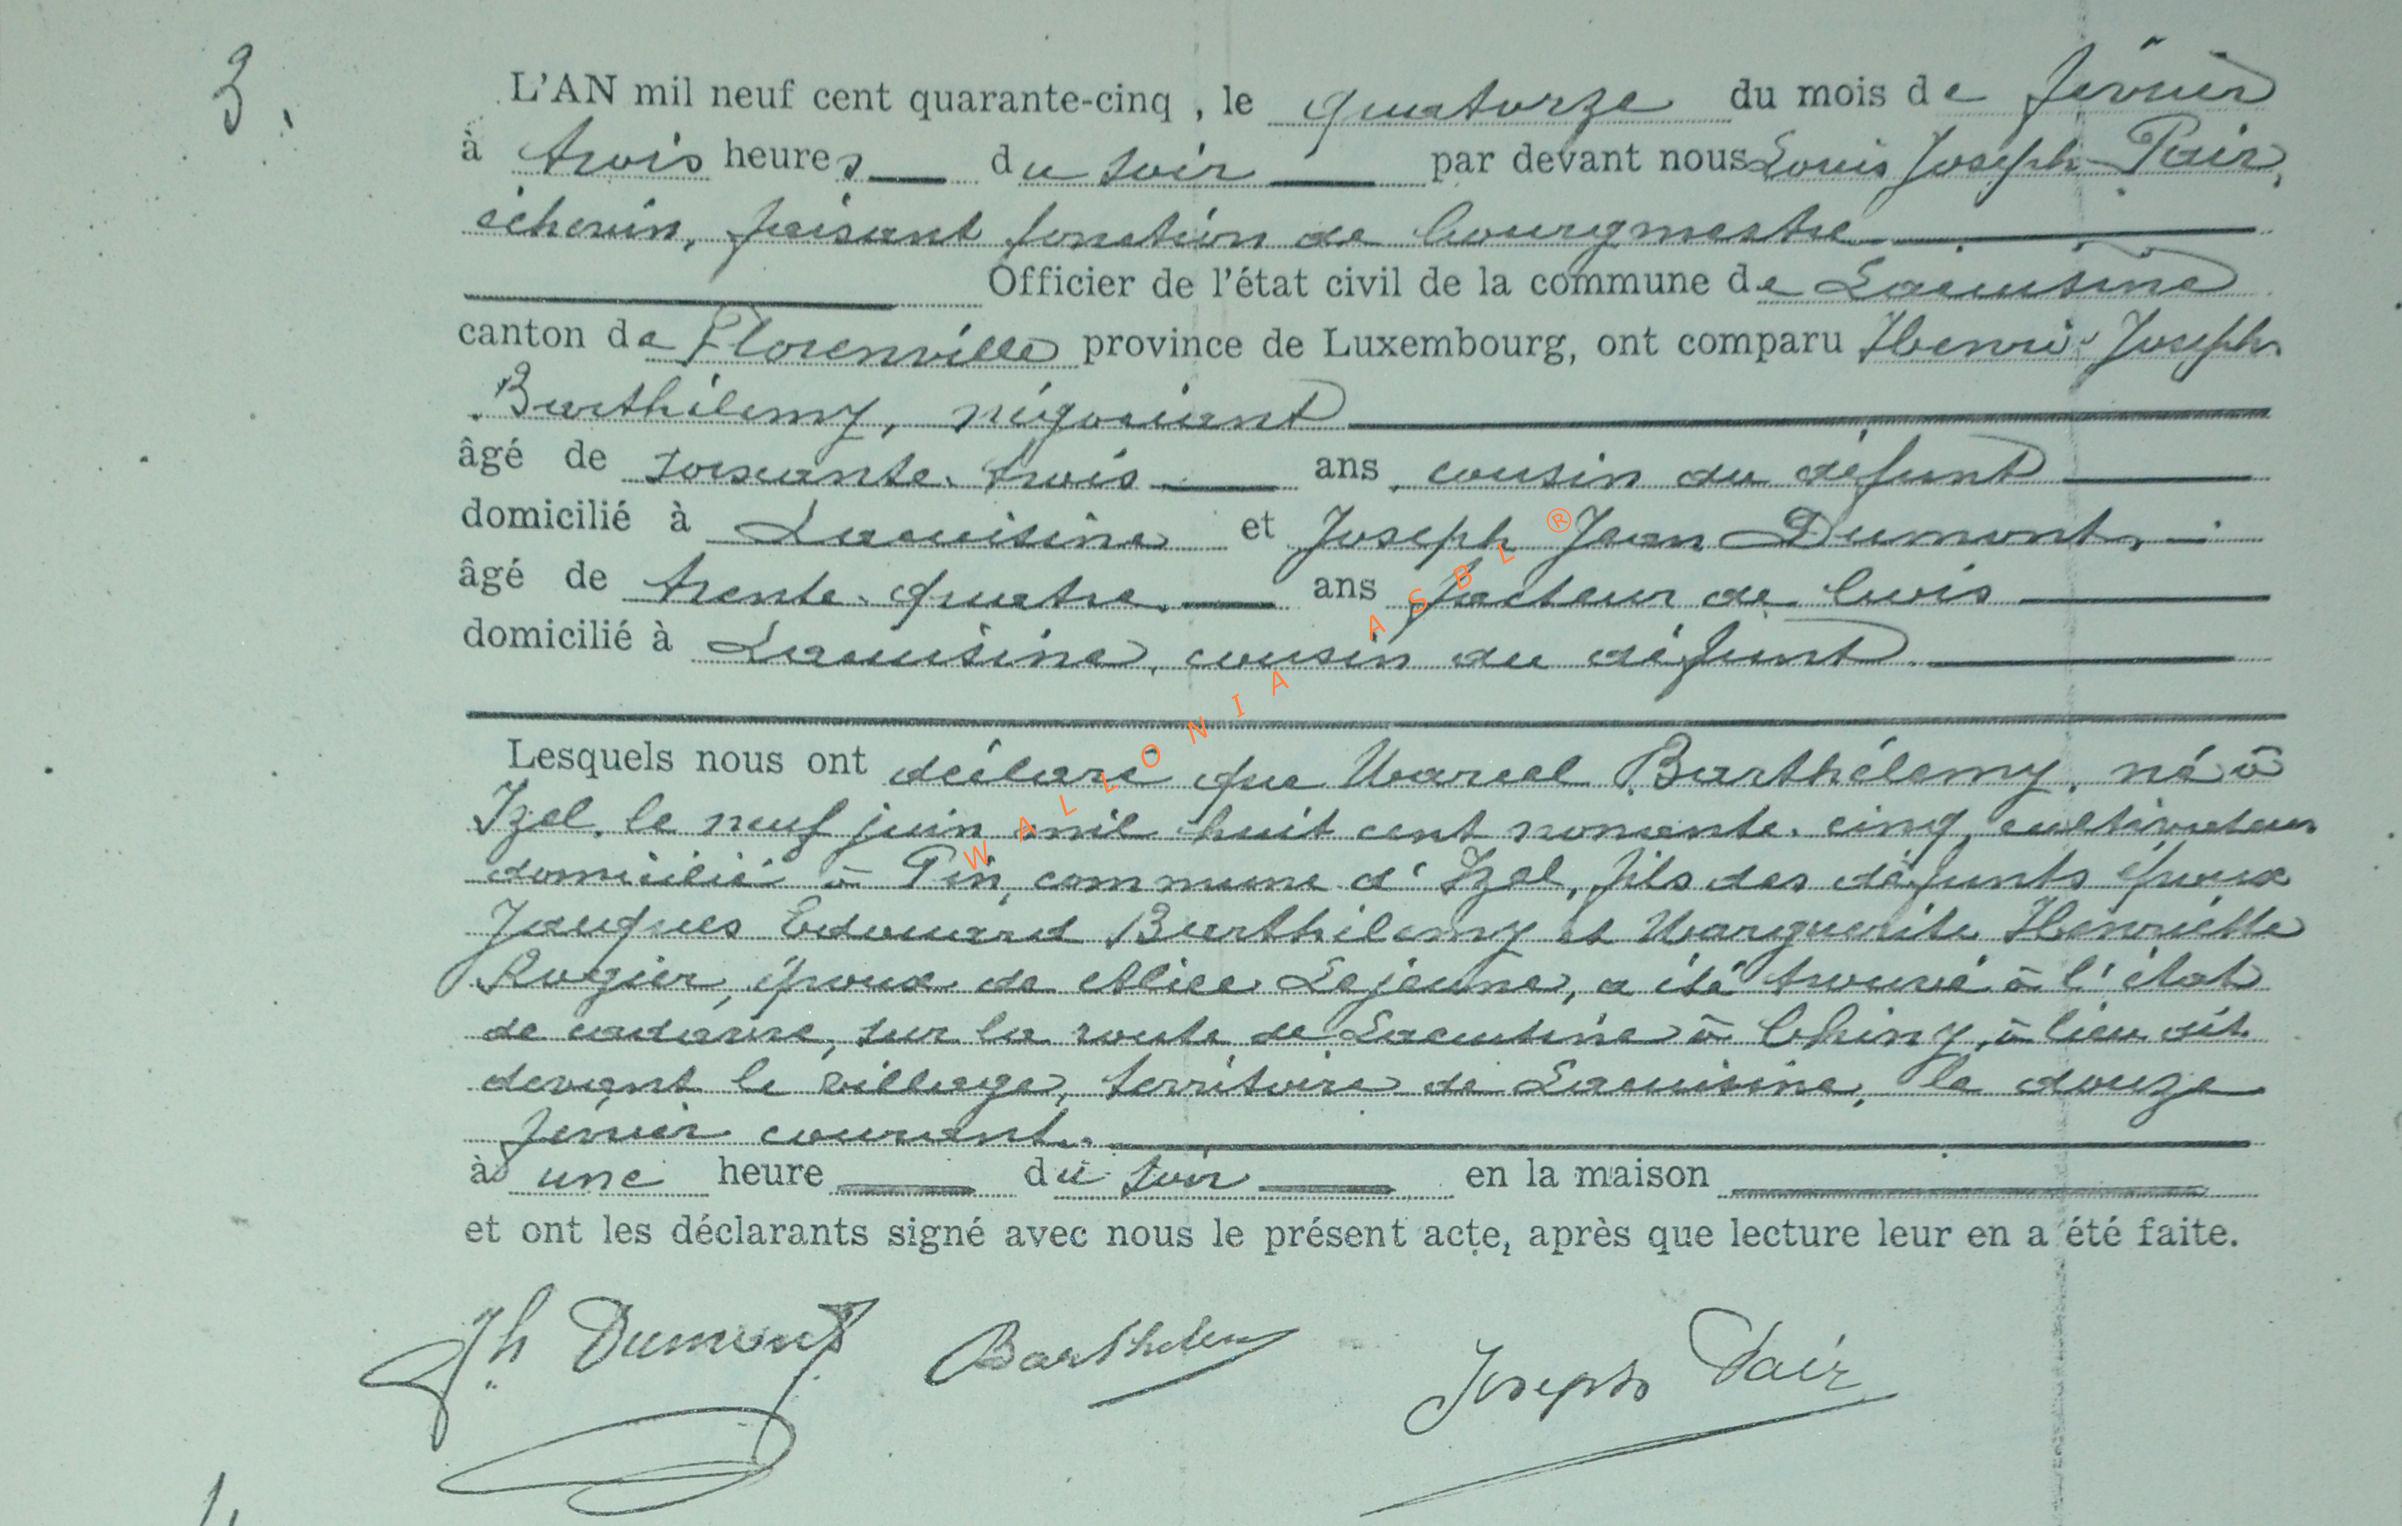 3.
L'AN mil neuf cent quarante-cinq, le quatorze du mois de février
à trois heures du soir par devant nous Louis Joseph Pair,
échevin, faisant fonction de bourgmestre
Officier de l'état civil de la commune de Lacuisine
canton de Florenville province de Luxembourg, ont comparu Henri Joseph
Barthélemy, négociant
âgé de soixante-trois ans, cousin du défunt
domicilié à Lacuisine et Joseph Jean Dumont,
âgé de trente-quatre ans facteur de bois
domicilié à Lacuisine, cousin du défunt.
Lesquels nous ont déclaré que Marcel Barthélemy, né à
Izel, le neuf juin mil huit cent nonante-cinq, cultivateur
domicilié à Pin, commune d'Izel, fils des défunts époux
Jacques Edouard Barthélemy et Marguerite Henriette
Rogier, époux de Alice Lejeune, a été trouvé à l'état
de cadavre, sur la route de Lacuisine à Chiny, à lieu dit
devant le village, territoire de Lacuisine, le douze
février courant.
à une heure du soir en la maison
et ont les déclarants signé avec nous le présent acte, après que lecture leur en a été faite.
Jh Dumont Barthelemy Joseph Pair
WALLONIA ASBL ®